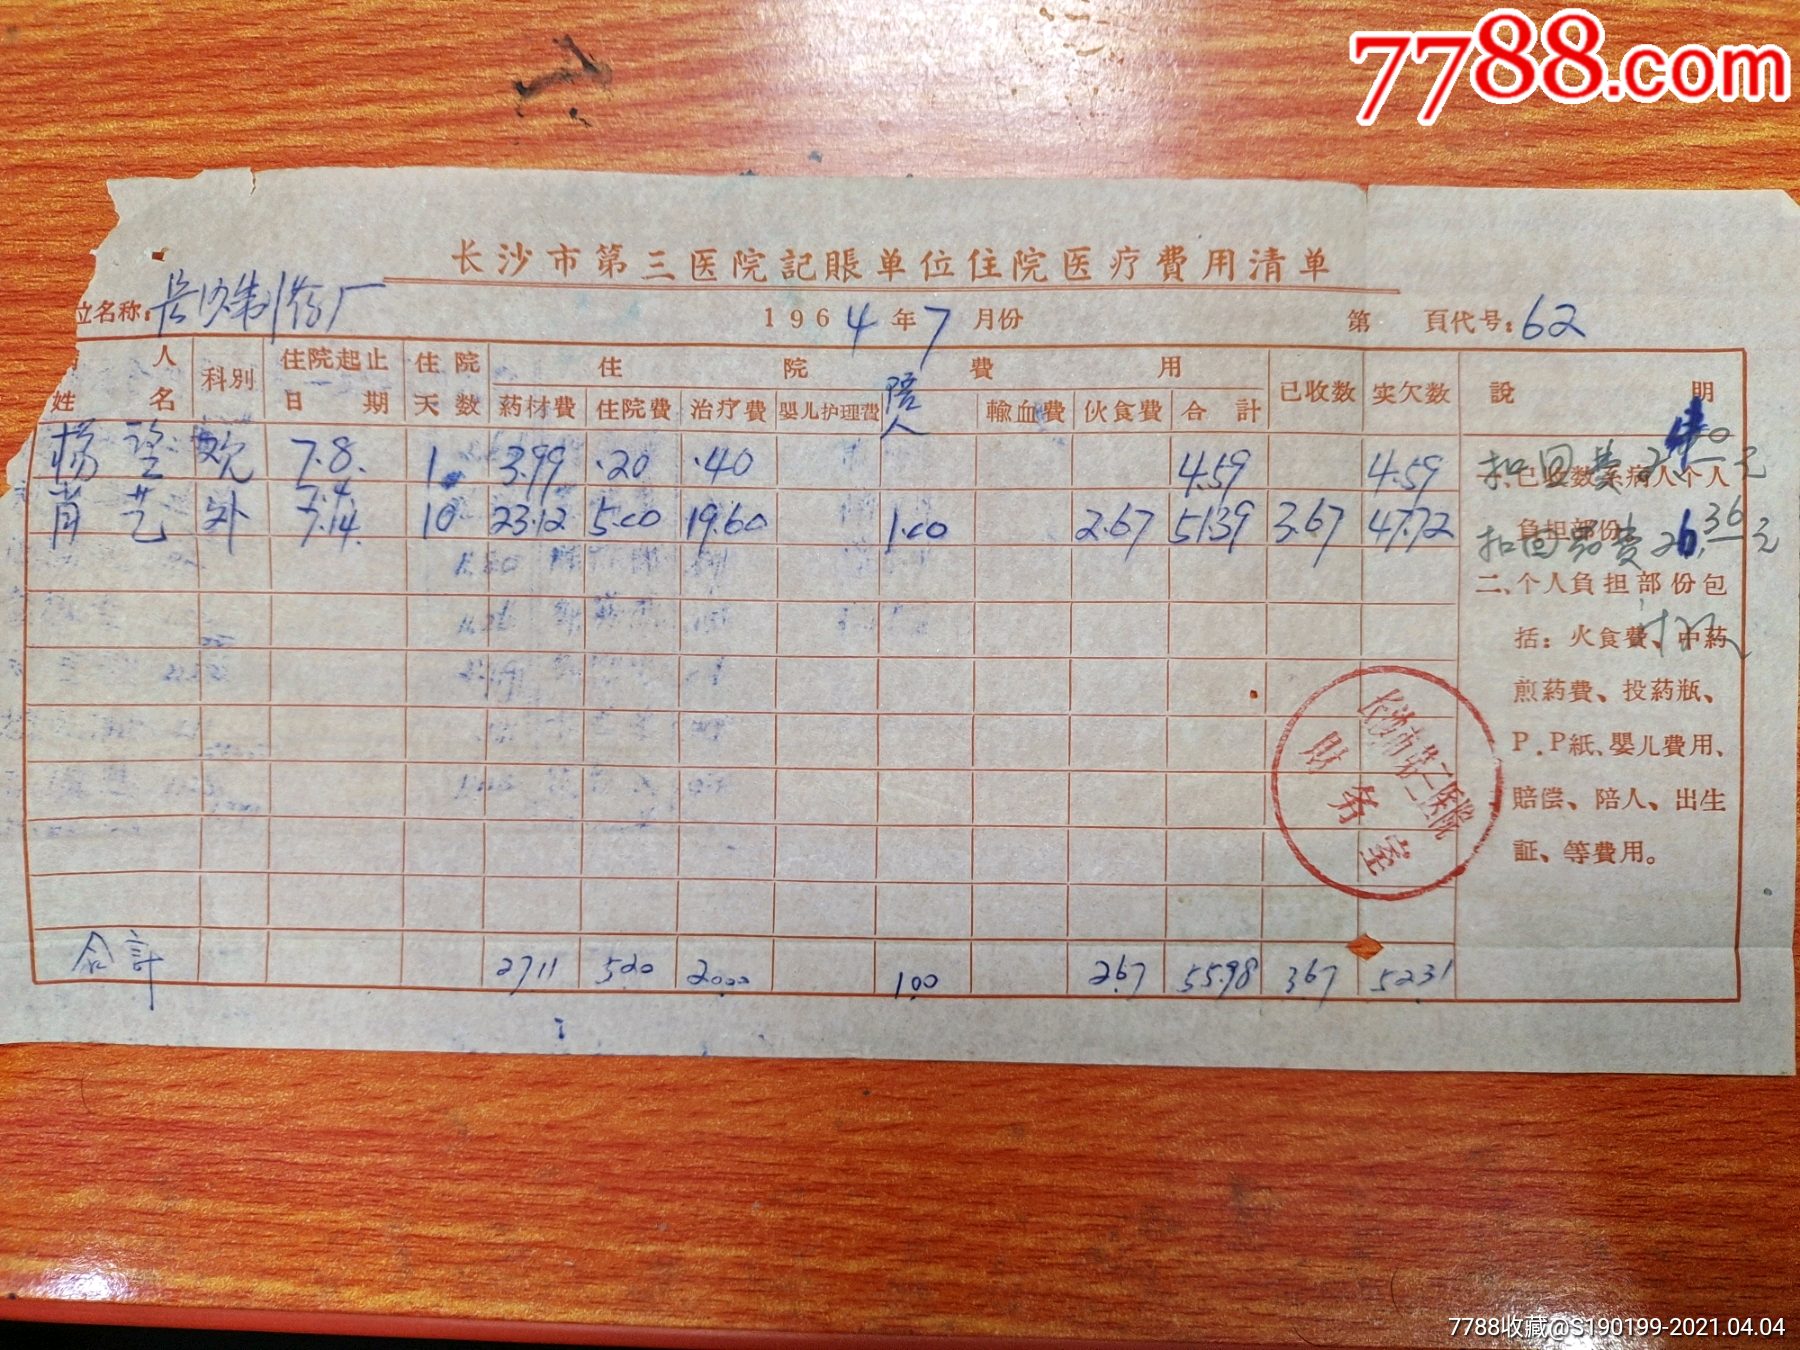 7788.com
长沙市第三医院記賬单位住院医疗費用清单
位名称：长沙制药厂 1964年7月份 第 頁代号：62
病人姓名 科別 住院起止日期 住院天数 住院費用 已收数 实欠数 說明
药材費 住院費 治疗費 嬰儿护理費 陪人 輸血費 伙食費 合計
杨 7.8. 1 3.99 .20 .40 4.59 4.59
肖艺 外 7.4 7.14. 10 23.12 5.00 19.60 1.00 2.67 51.39 3.67 47.72
一、已收数系病人个人
負担部份
二、个人負担部份包
括：火食費、中药
煎药費、投药瓶、
P.P紙、嬰儿費用、
賠偿、陪人、出生
証、等費用。
扣回
扣回药費26.36元
长沙市第三医院
財务室
合計 27.11 5.20 20.00 1.00 2.67 55.98 3.67 52.31
7788收藏@S190199-2021.04.04